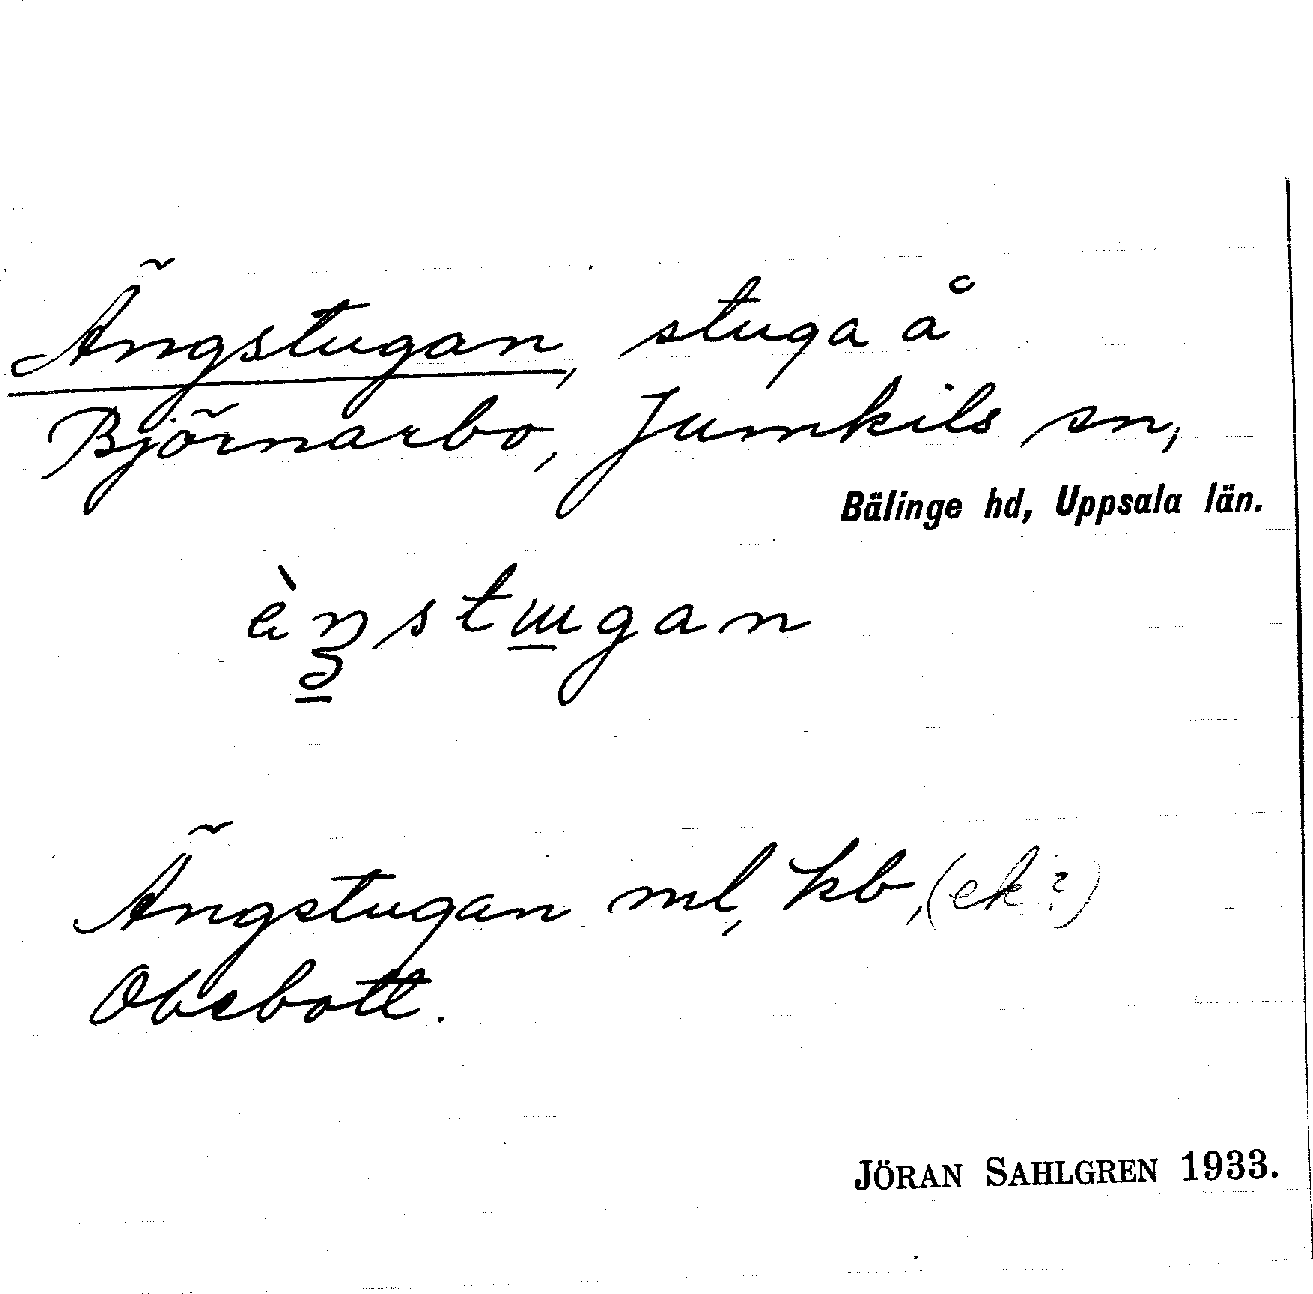 Ängstugan, stuga å
Björnarbo, Jumkils sn,
Bälinge hd, Uppsala län.
Ängstugan ml, kb, (ek?)
Obebott.
JÖRAN SAHLGREN 1933.